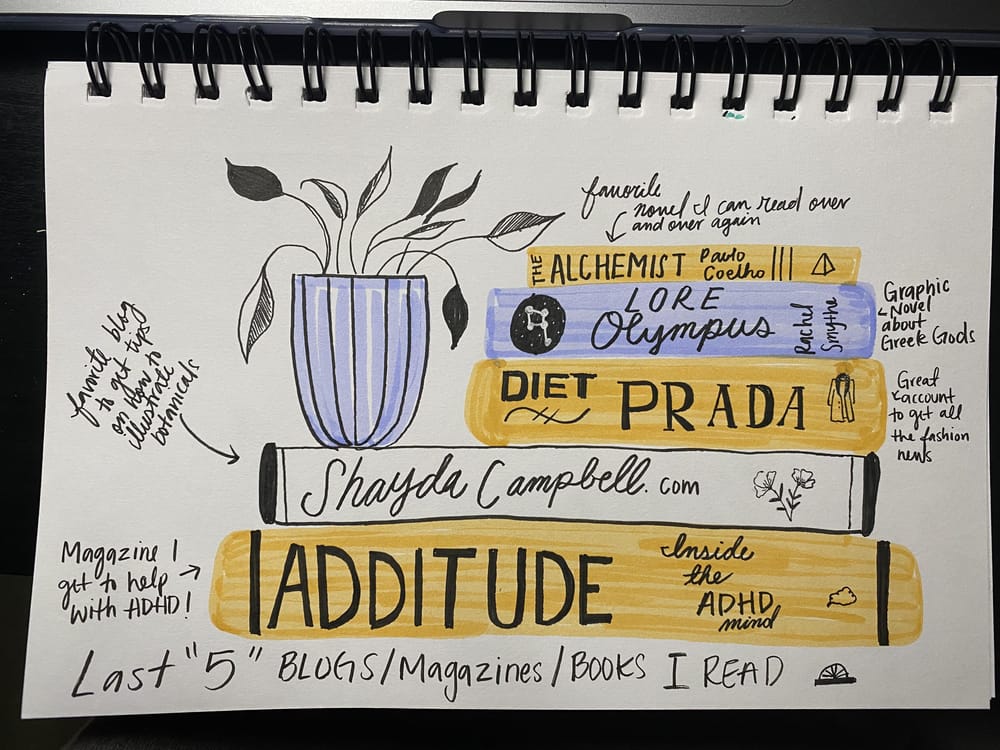 favorite
novel I can read over
and over again
THE ALCHEMIST Paulo
Coelho
LORE
Olympus
Rachel
Smythe
Graphic
Novel
about
Greek Gods
DIET
PRADA
Great
account
to get all
the fashion
news
favorite blog
to get tips
on how to
illustrate
botanicals
Shayda Campbell.com
Magazine I
get to help
with ADHD!
ADDITUDE
Inside
the
ADHD
mind
Last "5" BLOGS/Magazines/BOOKS I READ